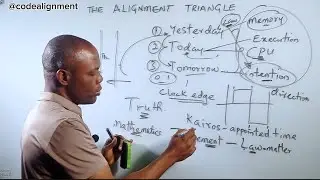 @codealignment
THE ALIGNMENT TRIANGLE
Law
① Yesterday
memory
② Today
Execution
CPU
③ Tomorrow
intention
0.1
Clock edge
direction
Truth
Mathematics
Kairos - appointed time
ement - Law-maker